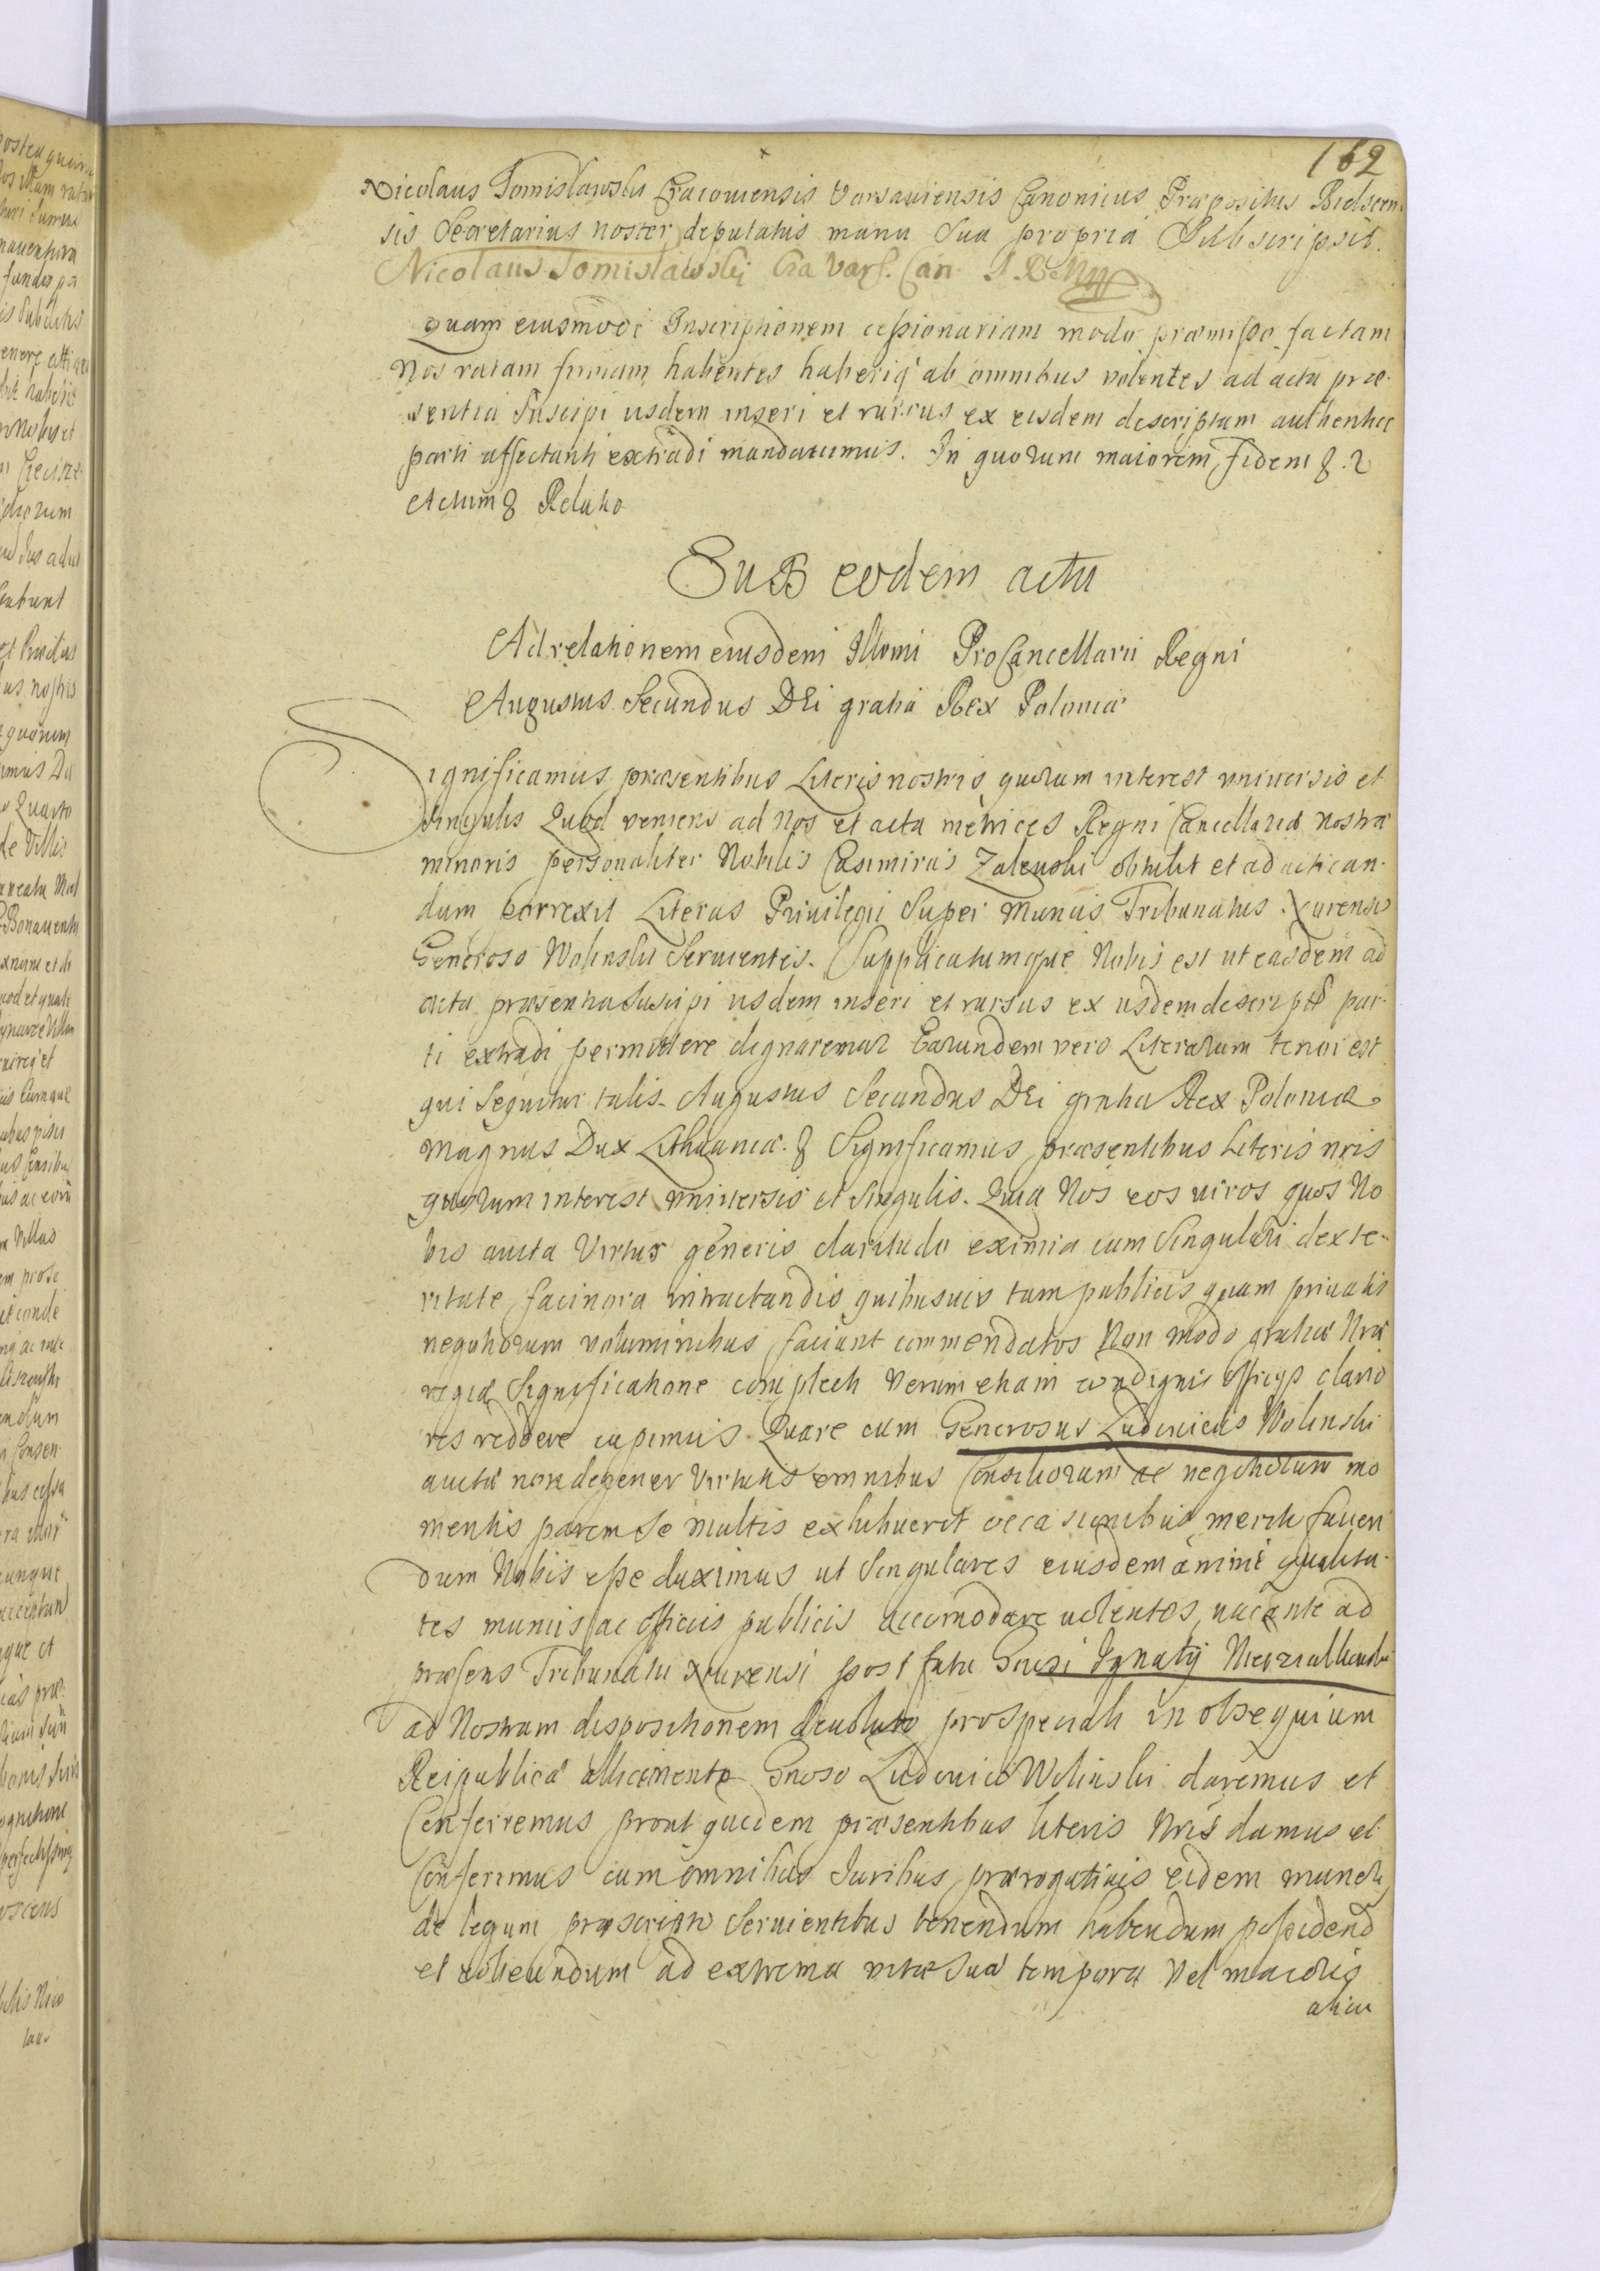 162
Nicolaus Tomisławski Cracoviensis Varsaviensis Canonicus Præpositus Bielscen
sis Secretarius noster deputatus manu sua propria Subscripsit.
Nicolaus Tomisławskj Cra Vars. Can
quam eiusmodi Inscriptionem cessionariam modo præmisso factam
Nos ratam firmam habentes haberiq ab omnibus volentes ad acta præ-
sentia Suscipi iisdem inseri et rursus ex eisdem descriptam authentice
parti affectanti extradi mandavimus. In quorum maiorem fidem
Actum Relatio
Sub eodem actu
Ad relationem eiusdem Illmi ProCancellarii Regni
Augustus Secundus DEi gratia Rex Poloniæ
Significamus præsentibus Literis nostris quorum interest universis et
singulis Quod veniens ad Nos et acta metrices Regni Cancellariæ nostræ
minoris personaliter Nobilis Casimirus Zalewski obtulit et ad actican-
dum porrexit Literas Privilegii Super Munus Tribunatus Xurensis
Generoso Wolinski Servientis. Supplicatumque Nobis est ut easdem ad
acta præsentia Suscipi iisdem inseri et rursus ex iisdem descriptas par-
ti extradi permittere dignaremur Earundem vero Literarum tenor est
qui Sequitur talis. Augustus Secundus DEi gratia Rex Poloniæ
Magnus Dux Lithuaniæ. Significamus præsentibus Literis nris
quorum interest universis et singulis. Quia Nos eos viros quos No
bis avita Virtus generis claritudo eximia cum Singulari dexte-
ritate facinora intractandis quibusvis tam publicis quam privatis
negotiorum voluminibus faciunt commendatos Non modo gratiæ Nræ
regiæ Significatione complecti Verum etiam condignis officys clario
res reddere cupimus. Quare cum Generosus Ludovicus Wolinski
avitæ non degener Virtutis omnibus Consiliorum ac negotiorum mo
mentis parem Se multis exhibuerit occasionibus merito faven
dum Nobis esse duximus ut Singulares eiusdem animi qualita-
tes muniis ac officiis publicis accomodare volentes, vacante ad
præsens Tribunatu Xurensi post fata Gnosi Ignatij
ad Nostram dispositionem devoluto prospeciali in obsequium
Reipublicæ allicimento Gnoso Ludovico Wolinski daremus et
Conferremus prout quidem præsentibus literis Nris damus et
Conferimus cum omnibus Juribus prærogativis eidem muneri
de legum præscripto Servientibus tenendum habendum possidend
et obeundum ad extrema vitæ suæ tempora Vel maioris
alicu